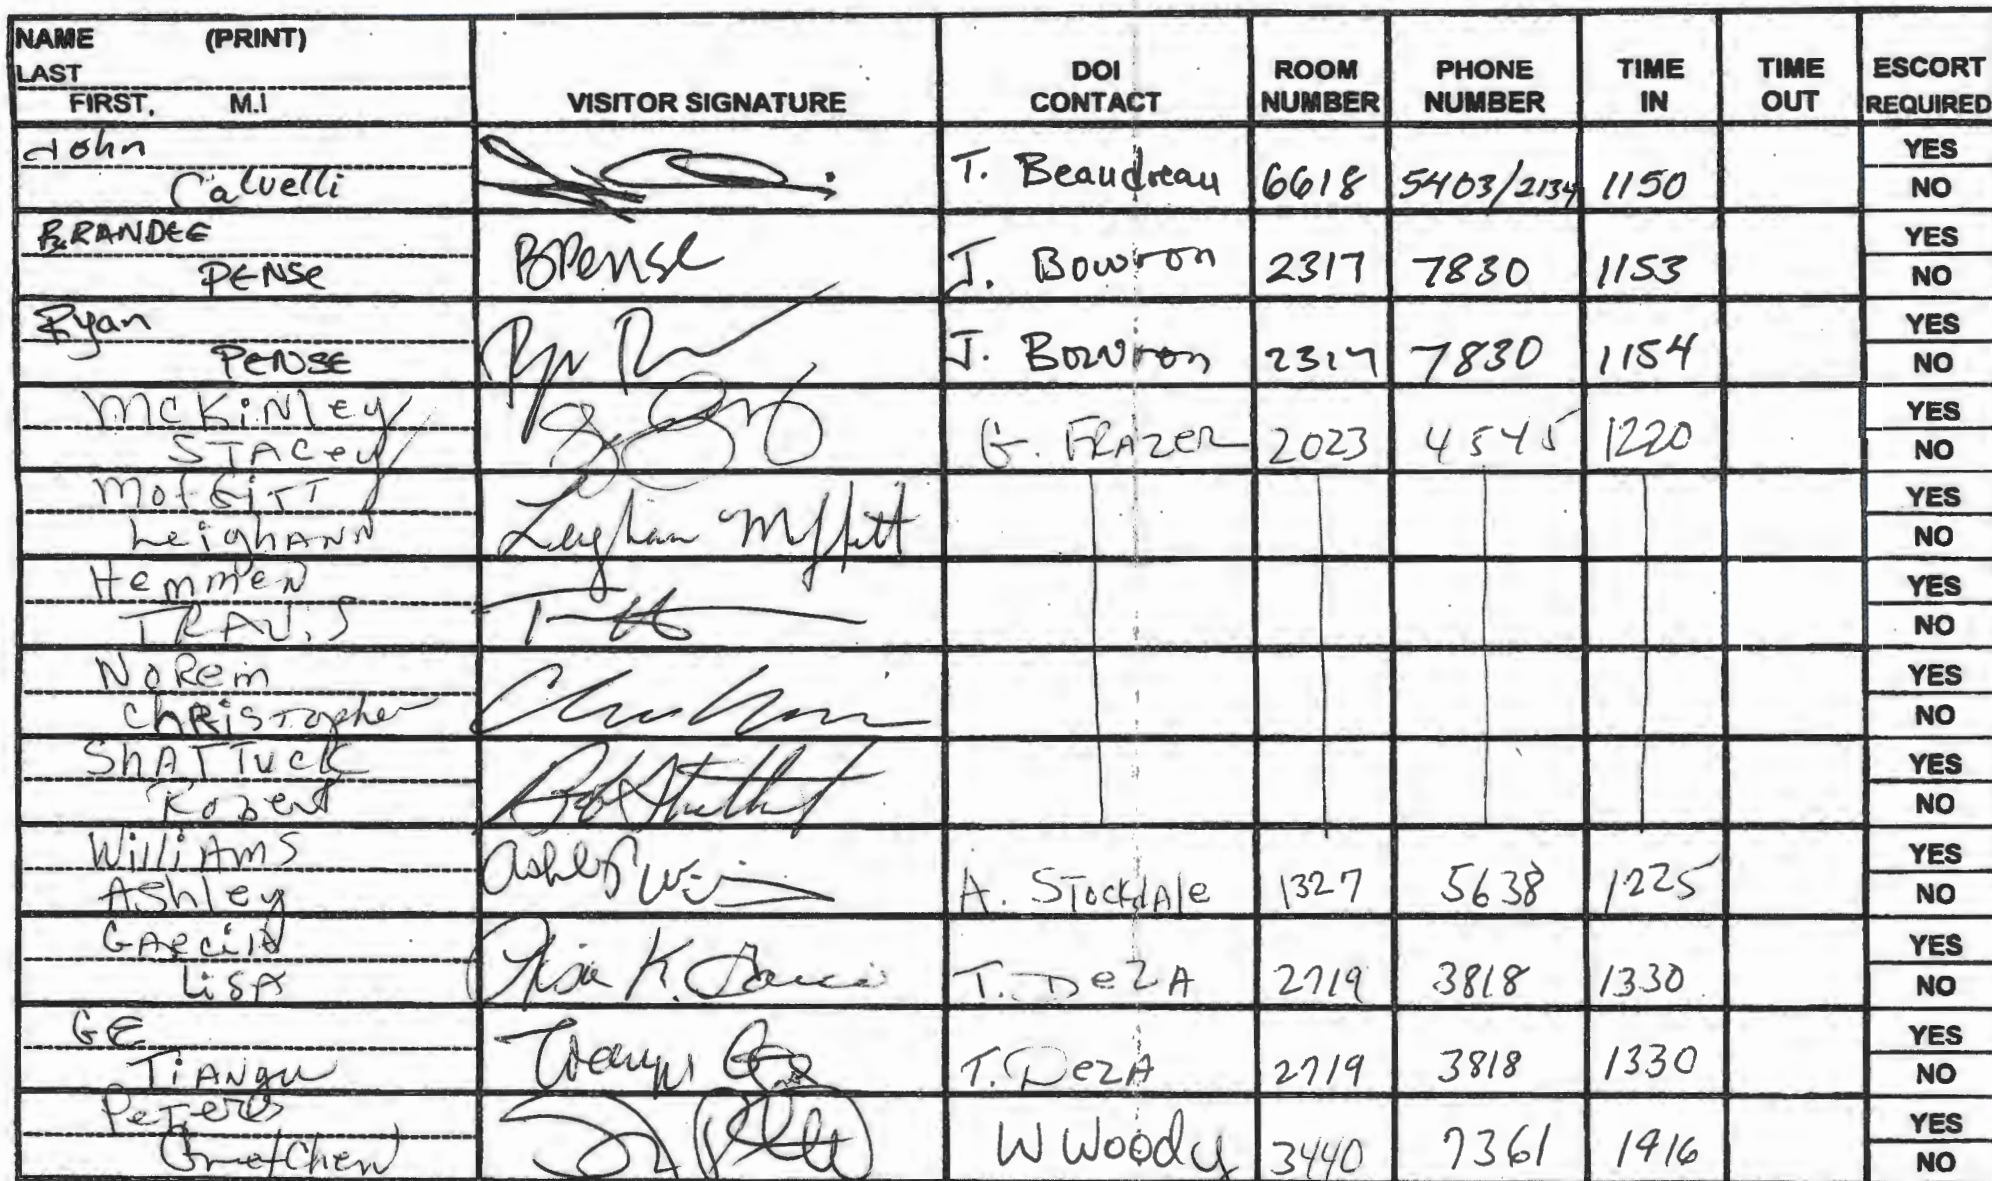 NAME (PRINT)
LAST
FIRST, M.I
VISITOR SIGNATURE
DOI CONTACT
ROOM NUMBER
PHONE NUMBER
TIME IN
TIME OUT
ESCORT REQUIRED
John
Calvelli T. Beaudreau 6618 5403/2134 1150 YES NO
BRANDEE
PENSE BPense J. Bowron 2317 7830 1153 YES NO
Ryan
PENSE J. Bowron 2317 7830 1154 YES NO
McKiNley
STACey G. FRAZER 2023 4545 1220 YES NO
MoffiTT
LeighANN Leighann Moffitt YES NO
HemmeN
TRAViS YES NO
NoRein
ChRiSTopher YES NO
ShATTuck
Robert Bob Shattuck YES NO
WilliAmS
AShley Ashley A. STockdAle 1327 5638 1225 YES NO
GARciA
LiSA Lisa K. Garcia T. DeZA 2719 3818 1330 YES NO
GE
TiANgu Tianyu Ge T. DezA 2719 3818 1330 YES NO
PeTers
GretCheN W Woody 3440 7361 1416 YES NO